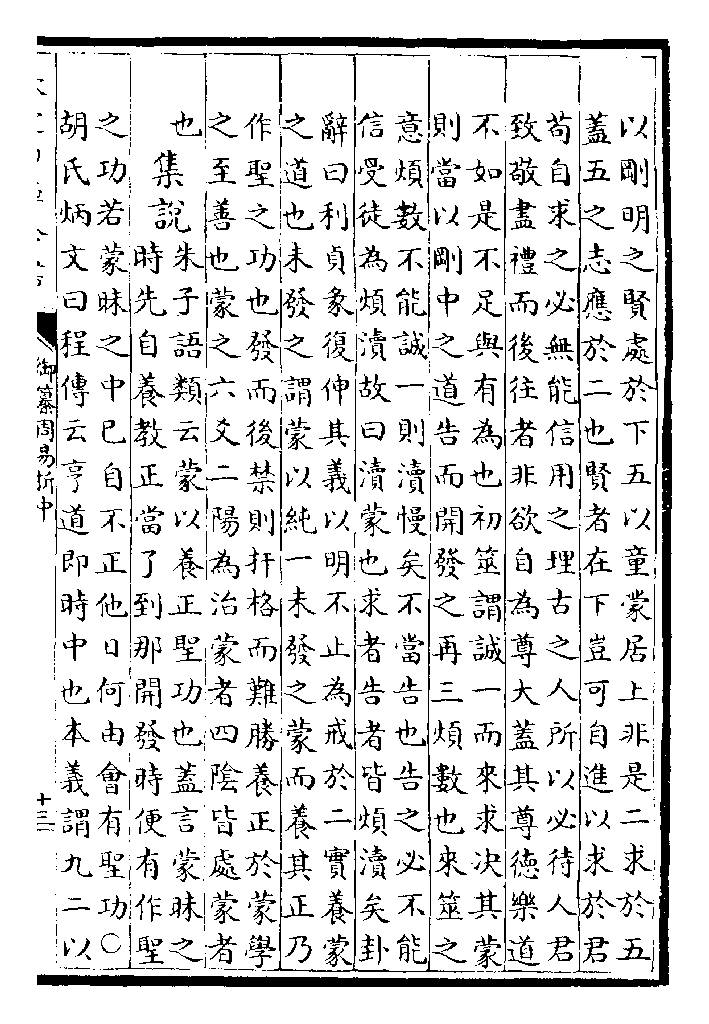 以剛明之賢處於下五以童蒙居上非是二求於五
蓋五之志應於二也賢者在下豈可自進以求於君
苟自求之必無能信用之理古之人所以必待人君
致敬盡禮而後往者非欲自為尊大蓋其尊德樂道
不如是不足與有為也初筮謂誠一而來求決其蒙
則當以剛中之道告而開發之再三煩數也來筮之
意煩數不能誠一則瀆慢矣不當告也告之必不能
信受徒為煩瀆故曰瀆蒙也求者告者皆煩瀆矣卦
辭曰利貞彖復伸其義以明不止為戒於二實養蒙
之道也未發之謂蒙以純一未發之蒙而養其正乃
作聖之功也發而後禁則扞格而難勝養正於蒙學
之至善也蒙之六爻二陽為治蒙者四陰皆處蒙者
也
集說
朱子語類云蒙以養正聖功也蓋言蒙昧之
時先自養教正當了到那開發時便有作聖
之功若蒙昧之中已自不正他日何由會有聖功○
胡氏炳文曰程傳云亨道即時中也本義謂九二以
御纂周易折中
十三